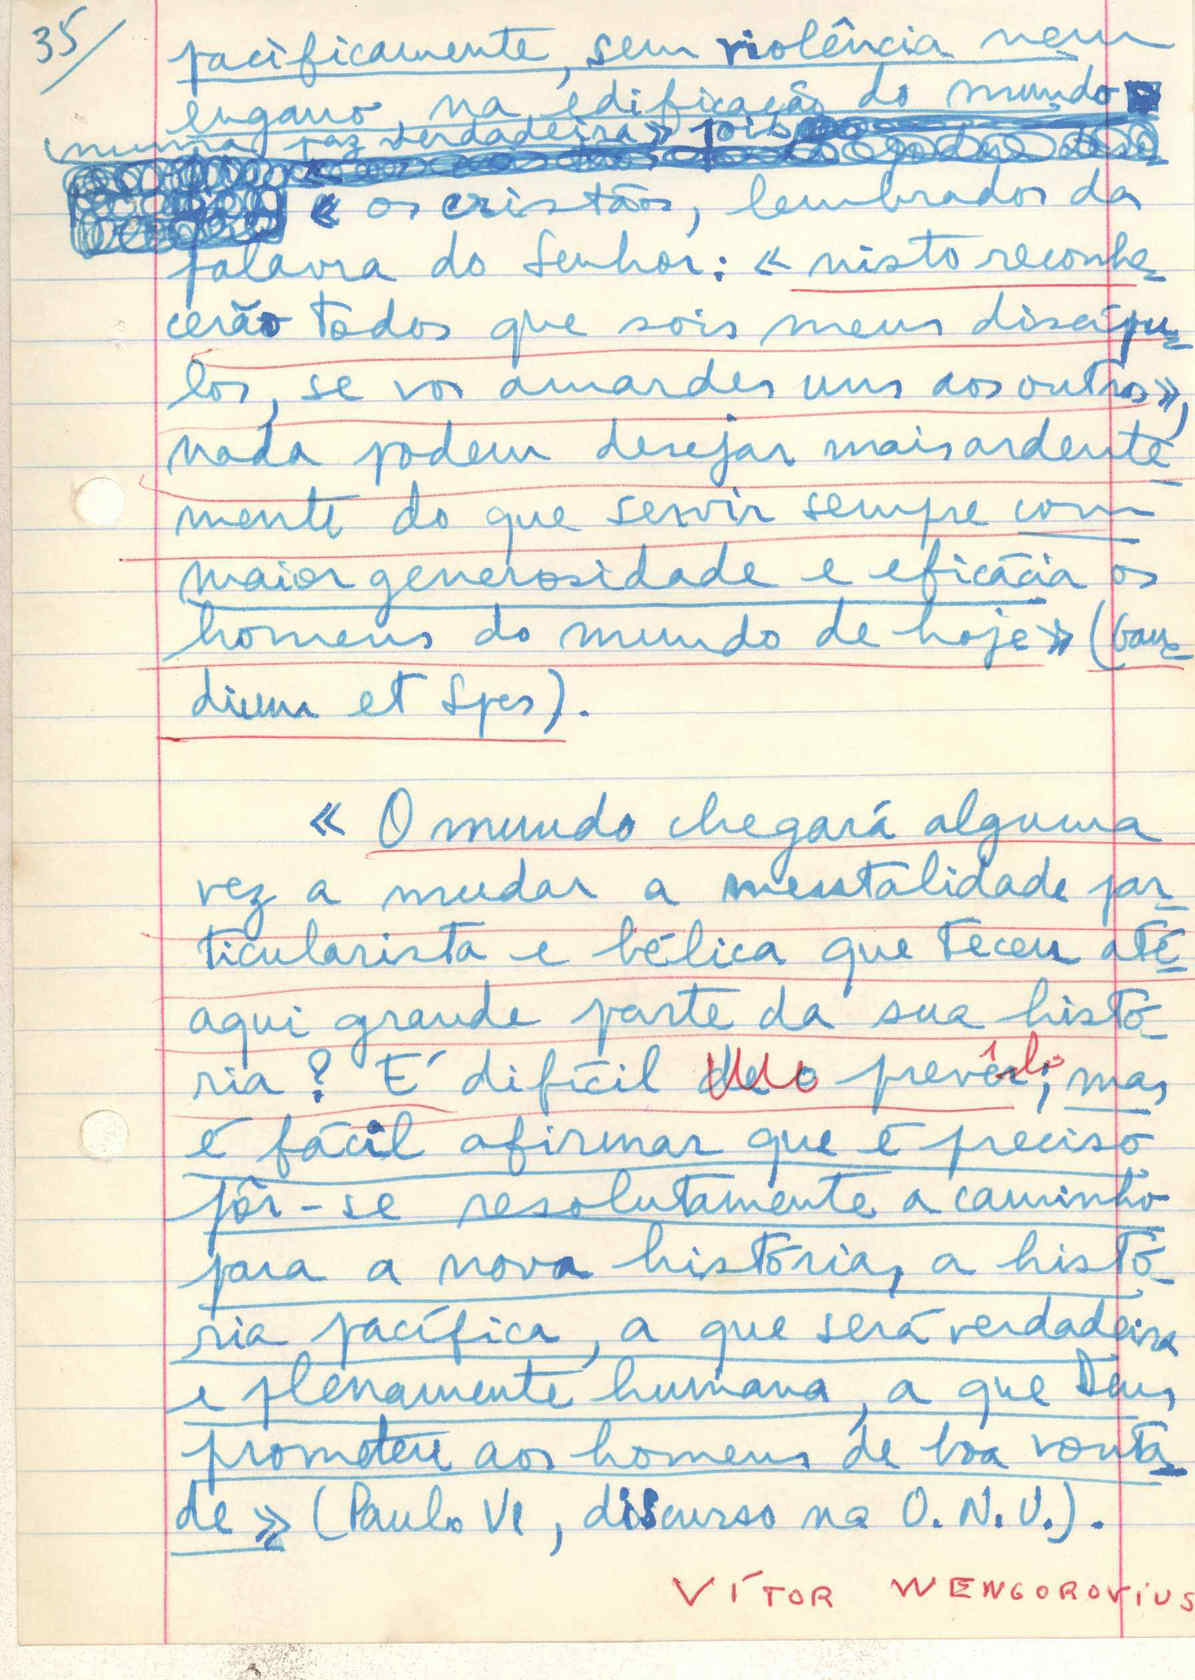 35/
pacificamente, sem violência nem
engano, na edificação do mundo
numa paz verdadeira» pois
« os cristãos, lembrados da
palavra do Senhor: « nisto reconhe-
cerão todos que sois meus discípu-
los, se vos amardes uns aos outros»,
nada podem desejar mais ardente-
mente do que servir sempre com
maior generosidade e eficácia os
homens do mundo de hoje» (Gau-
dium et Spes).
« O mundo chegará alguma
vez a mudar a mentalidade par-
ticularista e bélica que teceu até
aqui grande parte da sua histó-
ria? É difícil prevê-lo; mas
é fácil afirmar que é preciso
pôr-se resolutamente a caminho
para a nova história, a histó-
ria pacífica, a que será verdadeira
e plenamente humana, a que Deus
prometeu aos homens de boa vonta-
de» (Paulo VI, discurso na O.N.U.).
VÍTOR WENGOROVIUS